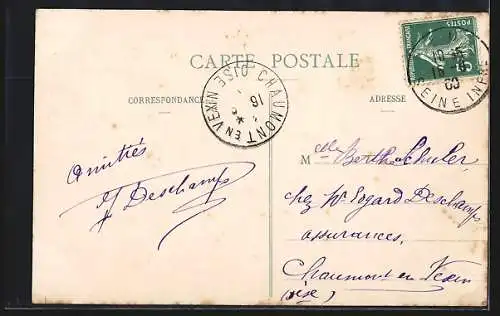 CARTE POSTALE
CORRESPONDANCE
ADRESSE
CHAUMONT EN VEXIN OISE
16
SEINE INF
POSTES
Amitiés
Deschamps
Melle Berthe
chez Mr Edgard Deschamps
assurances,
Chaumont en Vexin
(oise)